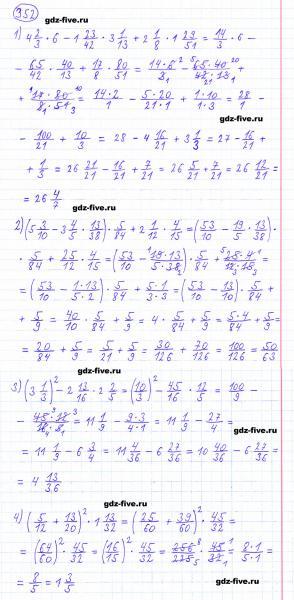 352
gdz-five.ru
1) 4 2/3 · 6 − 1 23/42 · 3 1/13 + 2 1/8 · 1 29/51 = 14/3 · 6 −
− 65/42 · 40/13 + 17/8 · 80/51 = 14·6²/3₁ − ⁵65·40²⁰/42₂₁·13₁ +
+ ¹17·80¹⁰/₁8·51₃ = 14·2/1 − 5·20/21·1 + 1·10/1·3 = 28/1 −
gdz-five.ru
− 100/21 + 10/3 = 28 − 4 16/21 + 3 1/3 = 27 − 16/21 +
+ 1/3 = 26 21/21 − 16/21 + 7/21 = 26 5/21 + 7/21 = 26 12/21 =
= 26 4/7
gdz-five.ru
2) (5 3/10 − 3 4/5 · 13/38) · 5/84 + 2 1/12 · 4/15 = (53/10 − 19/5 · 13/38) ·
· 5/84 + 25/12 · 4/15 = (53/10 − ¹19·13/5·38₂) · 5/84 + ⁵25·4¹/₃12·15₃ =
= (53/10 − 1·13/5·2) · 5/84 + 5·1/3·3 = (53/10 − 13/10) · 5/84 +
gdz-five.ru
+ 5/9 = 40/10 · 5/84 + 5/9 = 4 · 5/84 + 5/9 = 5·4/84 + 5/9 =
= 20/84 + 5/9 = 5/21 + 5/9 = 30/126 + 70/126 = 100/126 = 50/63
gdz-five.ru
3) (3 1/3)² − 2 13/16 · 2 2/5 = (10/3)² − 45/16 · 12/5 = 100/9 −
− ⁹45·12³/₄16·5₁ = 11 1/9 − 9·3/4·1 = 11 1/9 − 27/4 =
gdz-five.ru
= 11 1/9 − 6 3/4 = 11 4/36 − 6 27/36 = 10 40/36 − 6 27/36 =
= 4 13/36
gdz-five.ru
4) (5/12 + 13/20)² · 1 13/32 = (25/60 + 39/60)² · 45/32 =
= (64/60)² · 45/32 = (16/15)² · 45/32 = 256⁸/225₅ · 45¹/32₁ = 8·1/5·1 =
= 8/5 = 1 3/5
gdz-five.ru